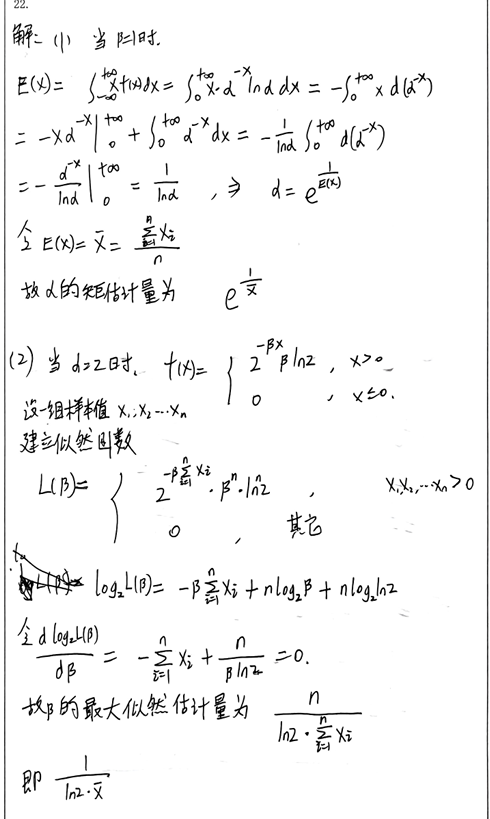 22.
解：(1) 当β=1时.
E(X)= ∫_{-∞}^{+∞} x f(x)dx = ∫_0^{+∞} x·α^{-x} lnα dx = -∫_0^{+∞} x d(α^{-x})
= -xα^{-x} |_0^{+∞} + ∫_0^{+∞} α^{-x}dx = -\frac{1}{lnα} ∫_0^{+∞} d(α^{-x})
= -\frac{α^{-x}}{lnα} |_0^{+∞} = \frac{1}{lnα} , ⇒ α = e^{\frac{1}{E(X)}}
令 E(X) = \bar{X} = \frac{\sum_{i=1}^{n} X_i}{n}
故α的矩估计量为 e^{\frac{1}{\bar{X}}}
(2) 当 α=2时. f(x)= { 2^{-βx} β ln2 , x>0
0 , x≤0.
设一组样本值 x_1, x_2 ⋯ x_n
建立似然函数
L(β)= { 2^{-β\sum_{i=1}^{n} x_i} · β^n · ln^n 2 , x_1, x_2, ⋯ x_n > 0
0 , 其它
log_2 L(β) = -β \sum_{i=1}^{n} x_i + n log_2 β + n log_2 ln2
令 \frac{d log_2 L(β)}{dβ} = -\sum_{i=1}^{n} x_i + \frac{n}{β ln2} = 0.
故β的最大似然估计量为 \frac{n}{ln2 · \sum_{i=1}^{n} X_i}
即 \frac{1}{ln2 · \bar{X}}